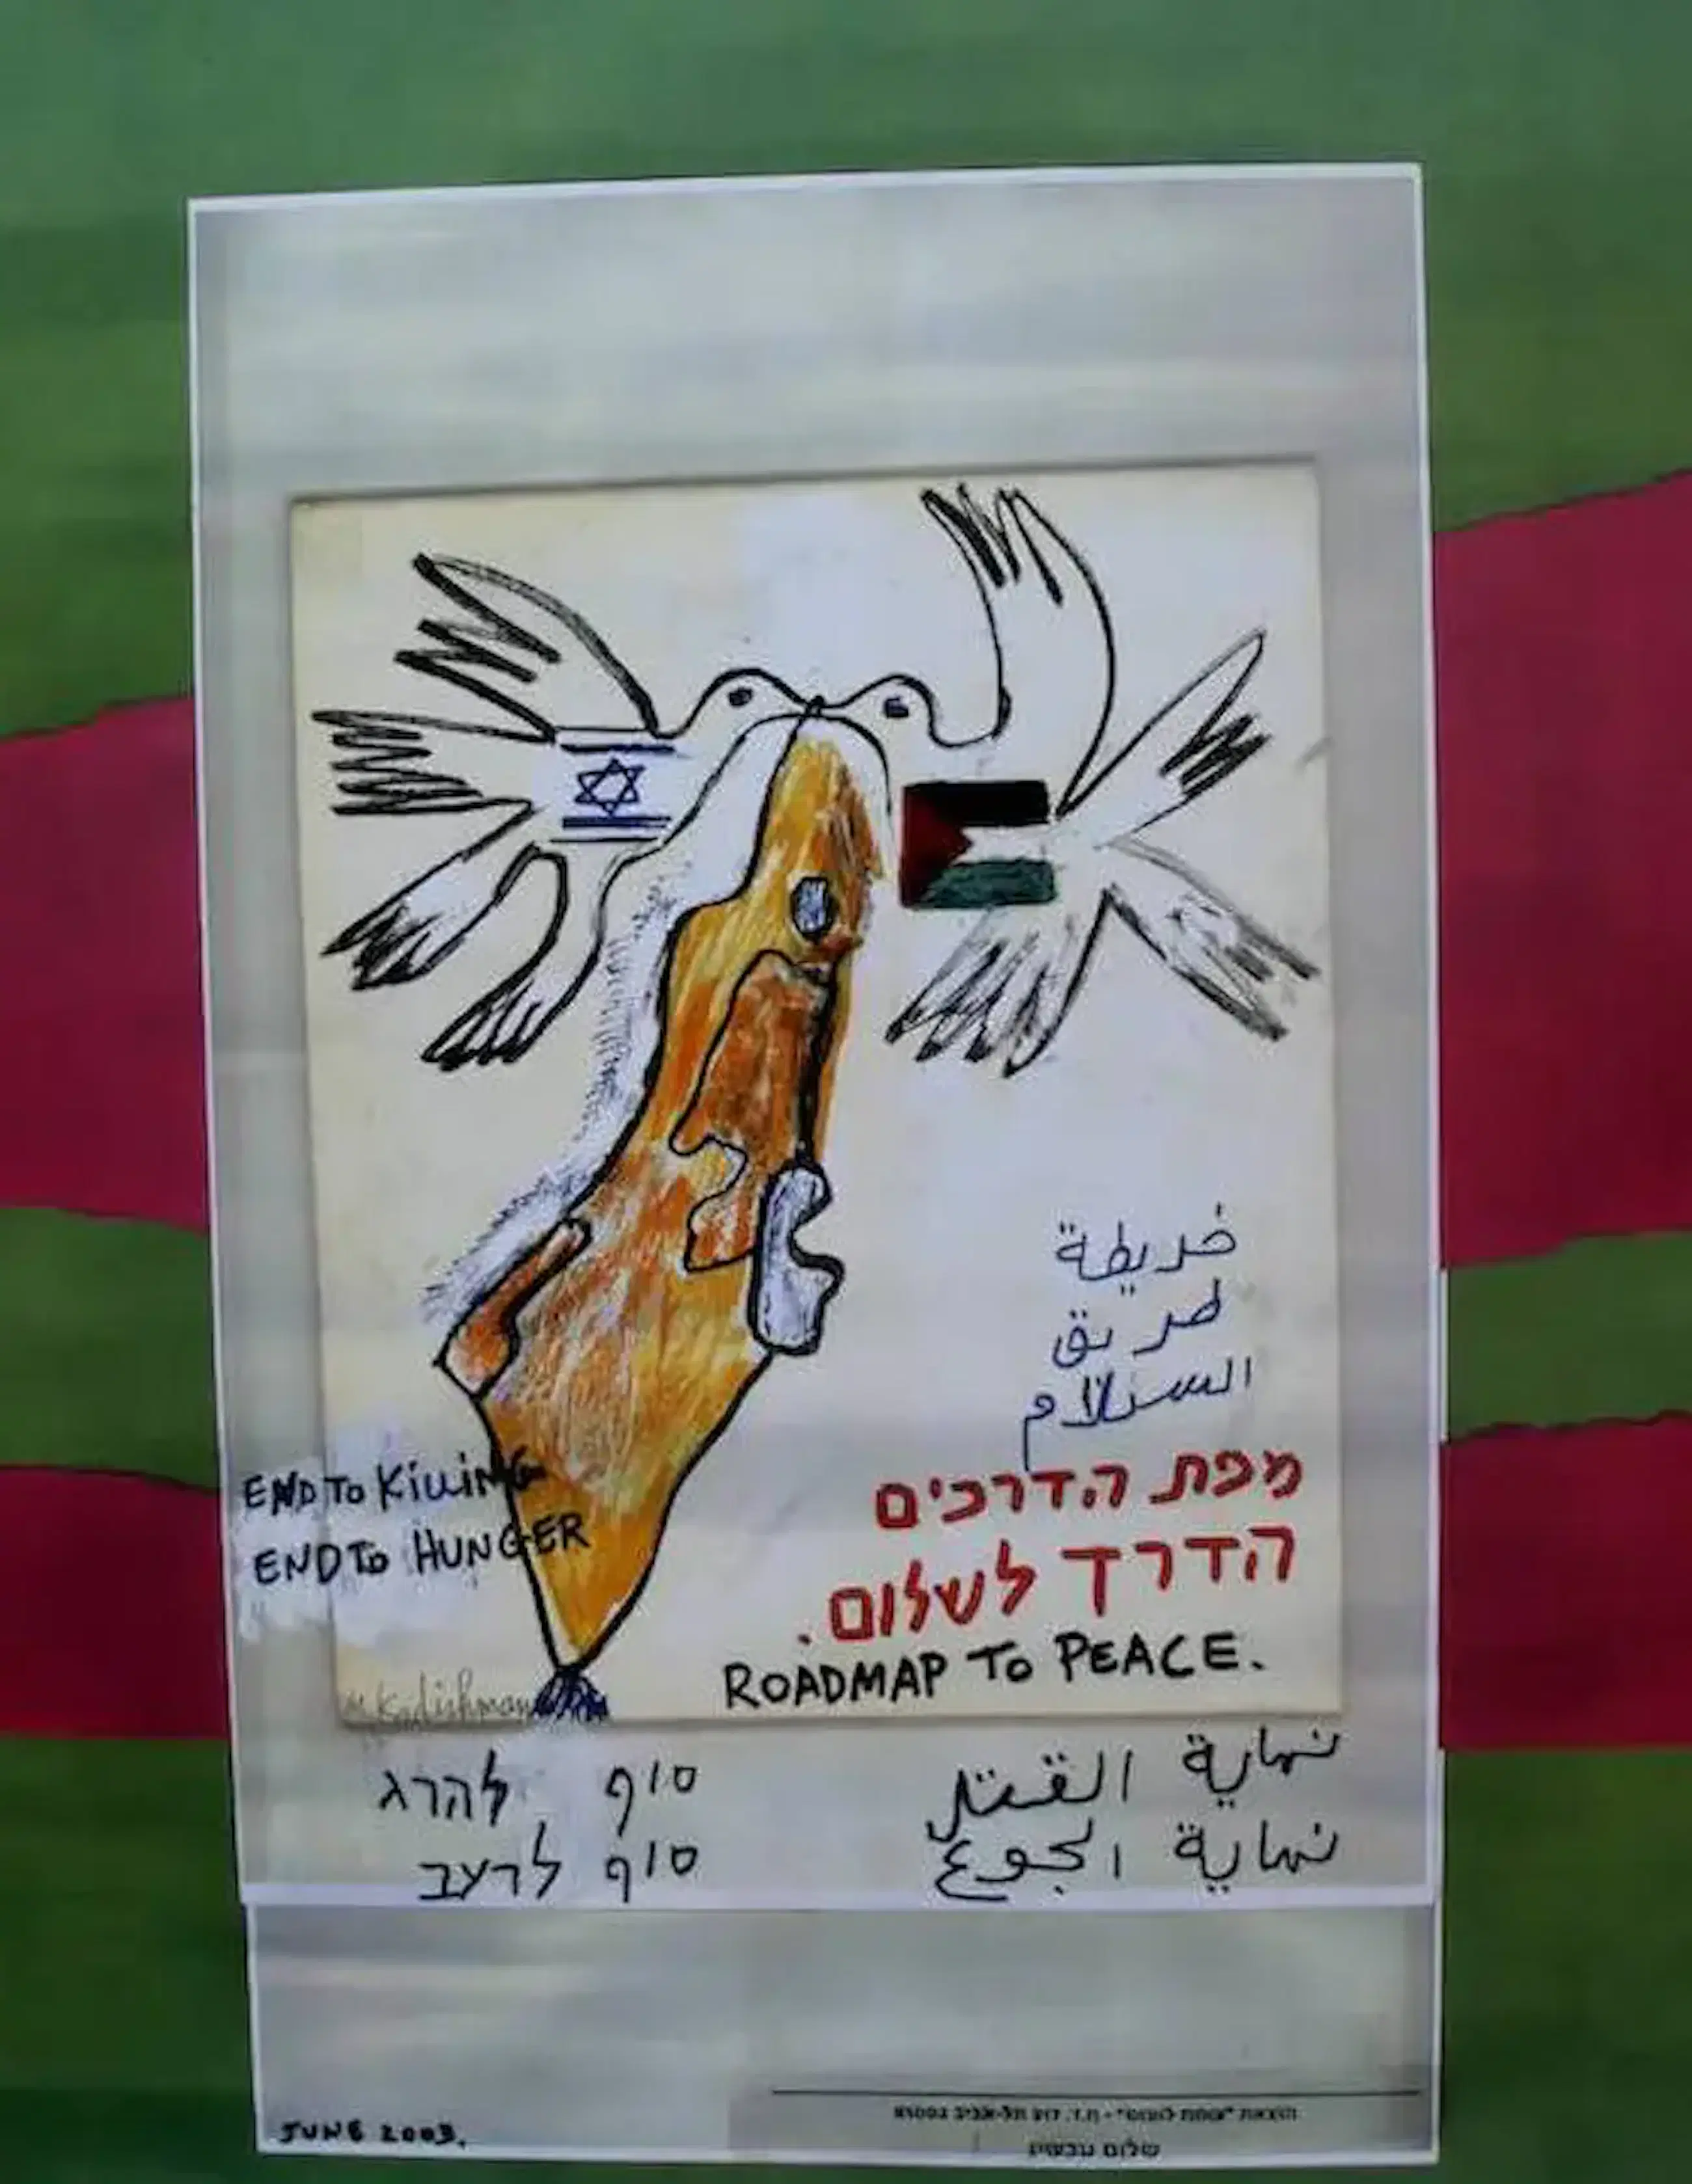 خريطة
طريق
السلام
END TO KILLING
END TO HUNGER
מפת הדרכים
הדרך לשלום.
ROADMAP TO PEACE.
M. Kadishman
نهاية القتل
نهاية الجوع
סוף להרג
סוף לרעב
JUNE 2003.